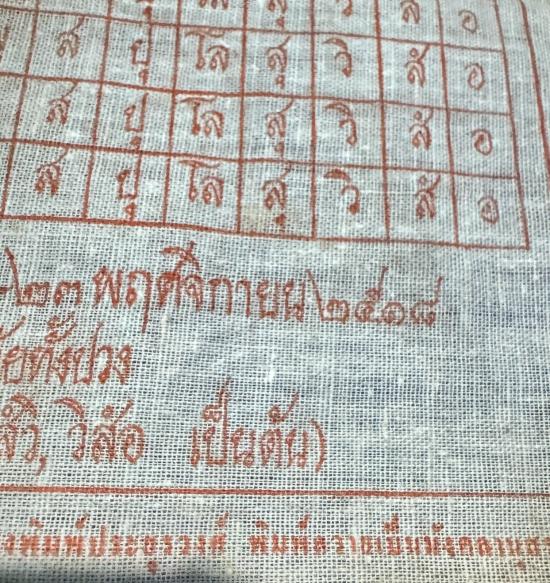 ส ปุ โล สุ วิ สั อ
ส ปุ โล สุ วิ สั อ
ส ปุ โล สุ วิ สั อ
๒๓ พฤศจิกายน ๒๕๑๘
ทั้งปวง
วิสัอ เป็นต้น)
พิมพ์ประยูรวงศ์ พิมพ์ถวายเป็นมังคลานุส